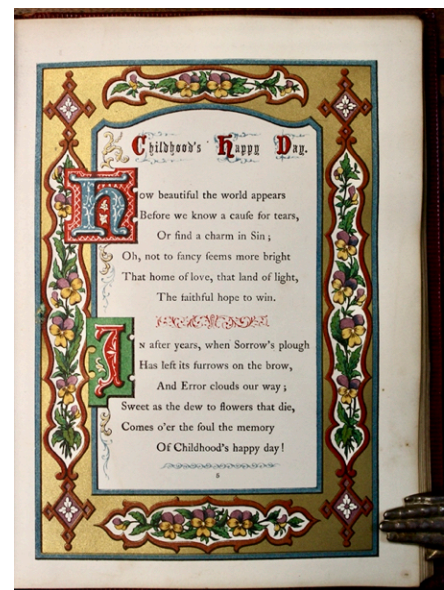 Childhood's Happy Day.
How beautiful the world appears
Before we know a cauſe for tears,
Or find a charm in Sin;
Oh, not to fancy ſeems more bright
That home of love, that land of light,
The faithful hope to win.
In after years, when Sorrow's plough
Has left its furrows on the brow,
And Error clouds our way;
Sweet as the dew to flowers that die,
Comes o'er the ſoul the memory
Of Childhood's happy day!
8